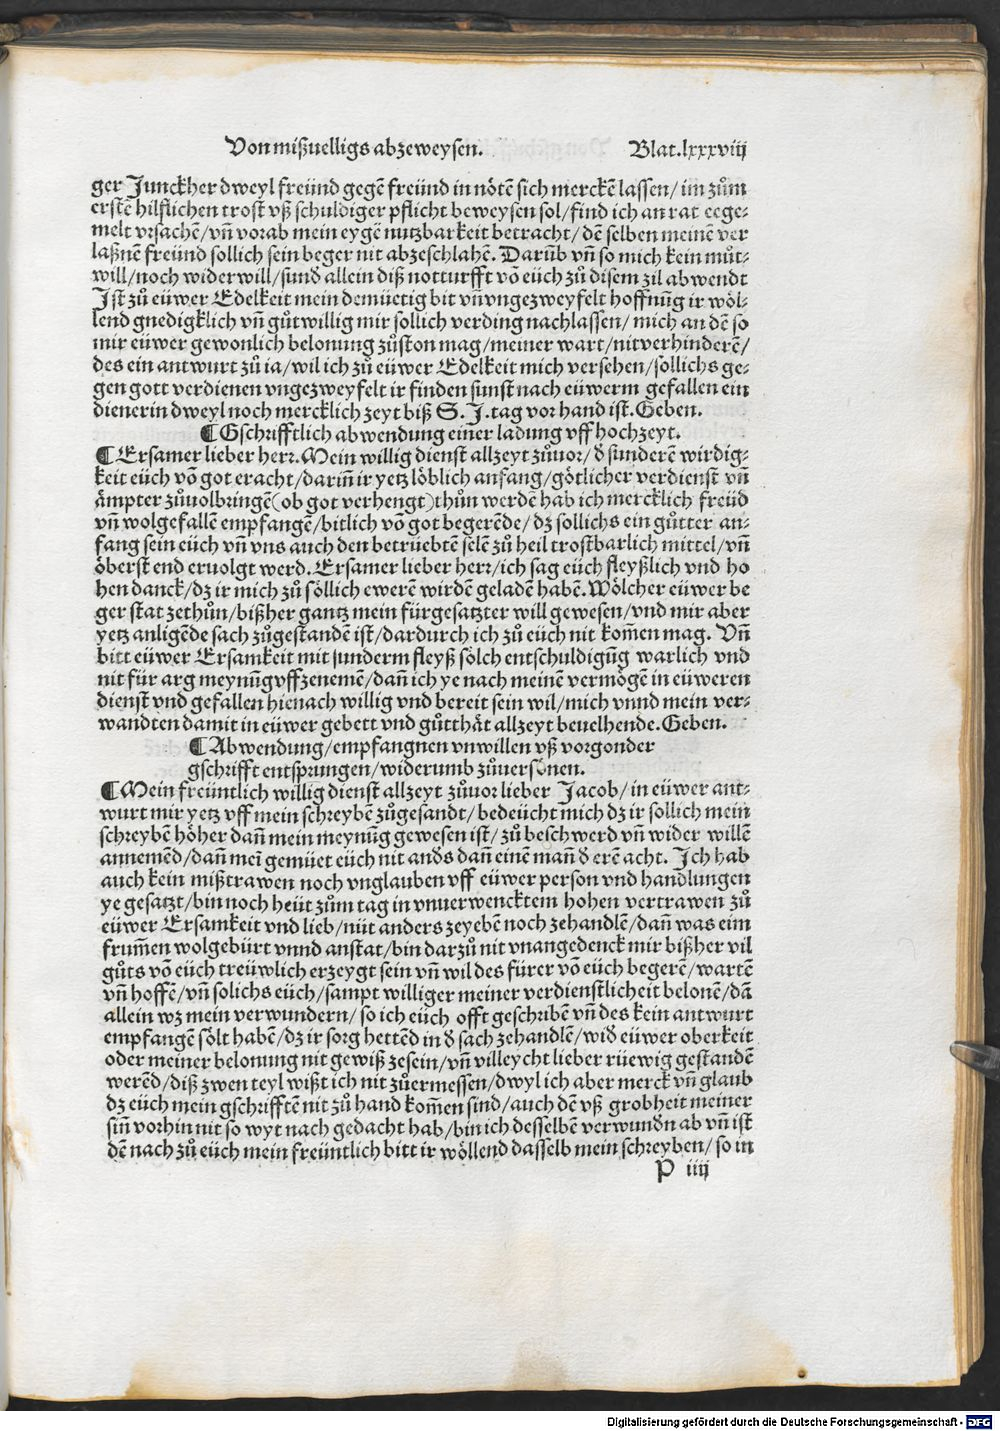 Von mißuelligs abzeweysen. Blat.lxxxviij
ger Junckher dweyl freünd gegē freünd in nötē sich merckē lassen/ im zům
erstē hilflichen trost vß schuldiger pflicht beweysen sol/find ich an rat eege⸗
melt vrsachē/vn̄ vorab mein eygē nutzbarkeit betracht/dē selben meinē ver
laßnē freünd sollich sein beger nit abzeschlahē. Darūb vn̄ so mich kein můt⸗
will/noch widerwill/sund allein diß notturfft vō eüch zů disem zil abwendt
Ist zů eüwer Edelkeit mein demüetig bit vn̄ vngezweyfelt hoffnūg ir wöl⸗
lend gnedigklich vn̄ gůtwillig mir sollich verding nachlassen/ mich an dē so
mir eüwer gewonlich belonung zůston mag/meiner wart/nit verhinderē/
des ein antwurt zů ia/wil ich zů eüwer Edelkeit mich versehen/sollichs ge⸗
gen gott verdienen vngezweyfelt ir finden sunst nach eüwerm gefallen ein
dienerin dweyl noch mercklich zeyt biß S. J. tag vorhand ist. Geben.
¶ Gschrifftlich abwendung einer ladung vff hochzeyt.
¶ Ersamer lieber herr. Mein willig dienst allzeyt zůuor/ d sunderē wirdig⸗
keit eüch vō got eracht/darin̄ ir yetz löblich anfang/götlicher verdienst vn̄
ämpter zůuolbringē(ob got verhengt)thůn werdē hab ich mercklich freüd
vn̄ wolgefallē empfangē/bitlich vō got begerēde/dz sollichs ein gůtter an⸗
fang sein eüch vn̄ vns auch den betrüebtē selē zů heil trostbarlich mittel/vn̄
öberst end eruolgt werd. Ersamer lieber herr/ich sag eüch fleyßlich vnd ho
hen danck/dz ir mich zů söllich ewerē wirdē geladē habē. Wölcher eüwer be
ger stat zethůn/bißher gantz mein fürgesatzter will gewesen/vnd mir aber
yetz anligēde sach zůgestandē ist/dardurch ich zů eüch nit kom̄en mag. Vn̄
bitt eüwer Ersamkeit mit sunderm fleyß sölch entschuldigūg warlich vnd
nit für arg meynūg vffzenemē/dan̄ ich ye nach meinē vermögē in eüweren
dienst vnd gefallen hienach willig vnd bereit sein wil/mich vnnd mein ver⸗
wandten damit in eüwer gebett vnd gůtthät allzeyt beuelhende. Geben.
¶ Abwendung/empfangnen vnwillen vß vorgonder
gschrifft entsprungen/widerumb zůuersönen.
¶ Mein freüntlich willig dienst allzeyt zůuor lieber Jacob/in eüwer ant⸗
wurt mir yetz vff mein schreybē zůgesandt/bedeücht mich dz ir sollich mein
schreybē höher dan̄ mein meynūg gewesen ist/zů beschwerd vn̄ wider willē
annemēd/dan̄ mei̅ gemüet eüch nit ands dan̄ einē man̄ d erē acht. Ich hab
auch kein mißtrawen noch vnglauben vff eüwer person vnd handlungen
ye gesatzt/bin noch heüt zům tag in vnuerwencktem hohen vertrawen zů
eüwer Ersamkeit vnd lieb/nüt anders zeyebē noch zehandlē/dan̄ was eim
frum̄en wolgebürt vnnd anstat/bin darzů nit vnangedenck mir bißher vil
gůts vō eüch treüwlich erzeygt sein vn̄ wil des fürer vō eüch begerē/wartē
vn̄ hoffē/vn̄ solichs eüch/sampt williger meiner verdienstlicheit belonē/dā
allein wz mein verwundern/so ich eüch offt geschribē vn̄ des kein antwurt
empfangē sölt habē/dz ir sorg hettēd in d sach zehandlē/wid eüwer oberkeit
oder meiner belonung nit gewiß zesein/vn̄ villeycht lieber rüewig gestandē
werēd/diß zwen teyl wißt ich nit zůermessen/dwyl ich aber merck vn̄ glaub
dz eüch mein gschrifftē nit zů hand kom̄en sind/auch dē vß grobheit meiner
sin̄ vorhin nit so wyt nach gedacht hab/bin ich desselbē verwundn ab vn̄ ist
dē nach zů eüch mein freüntlich bitt ir wöllend dasselb mein schreyben/so in
P iiij
Digitalisierung gefördert durch die Deutsche Forschungsgemeinschaft - DFG